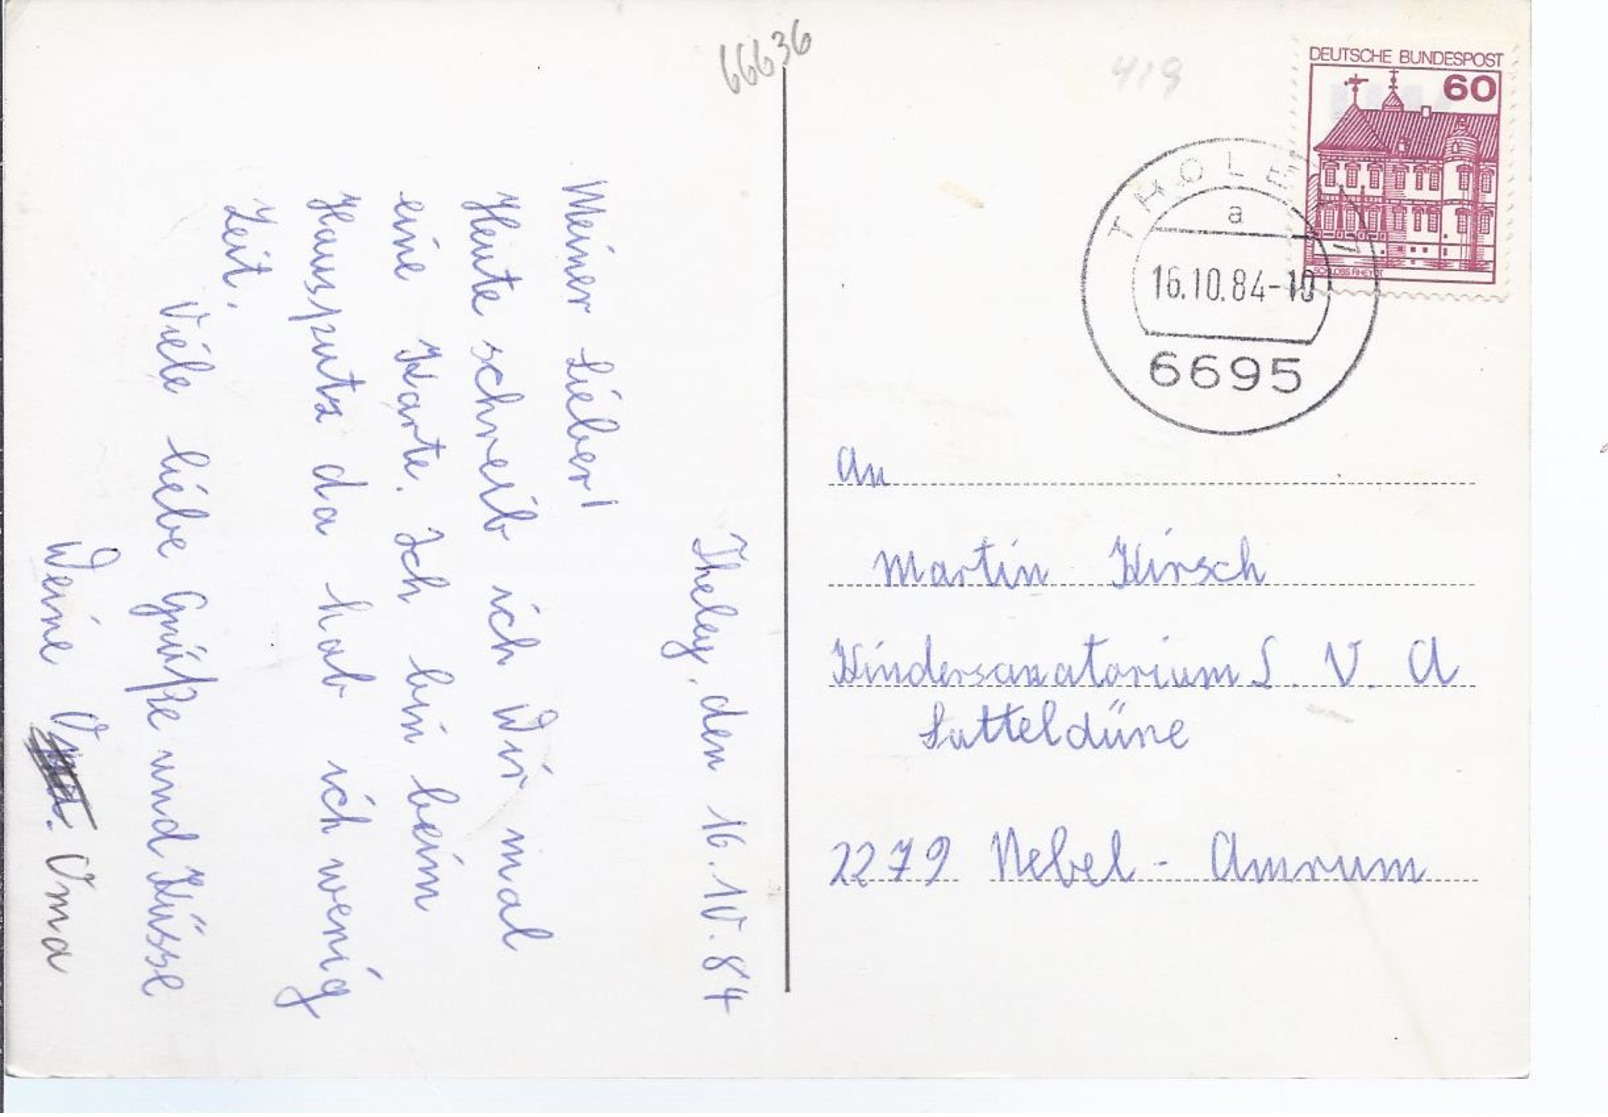 66636
419
DEUTSCHE BUNDESPOST
60
SCHLOSS RHEYDT
THOLEY 1
a
16.10.84-10
6695
Theley, den 16.10.84
Meiner Lieber!
Heute schreib ich Dir mal
eine Karte. Ich bin beim
Hausputz da hab ich wenig
Zeit.
Viele liebe Grüße und Küsse
Deine Oma
An
Martin Kirsch
Kindersanatorium L. V. A
Satteldüne
2279 Nebel - Amrum